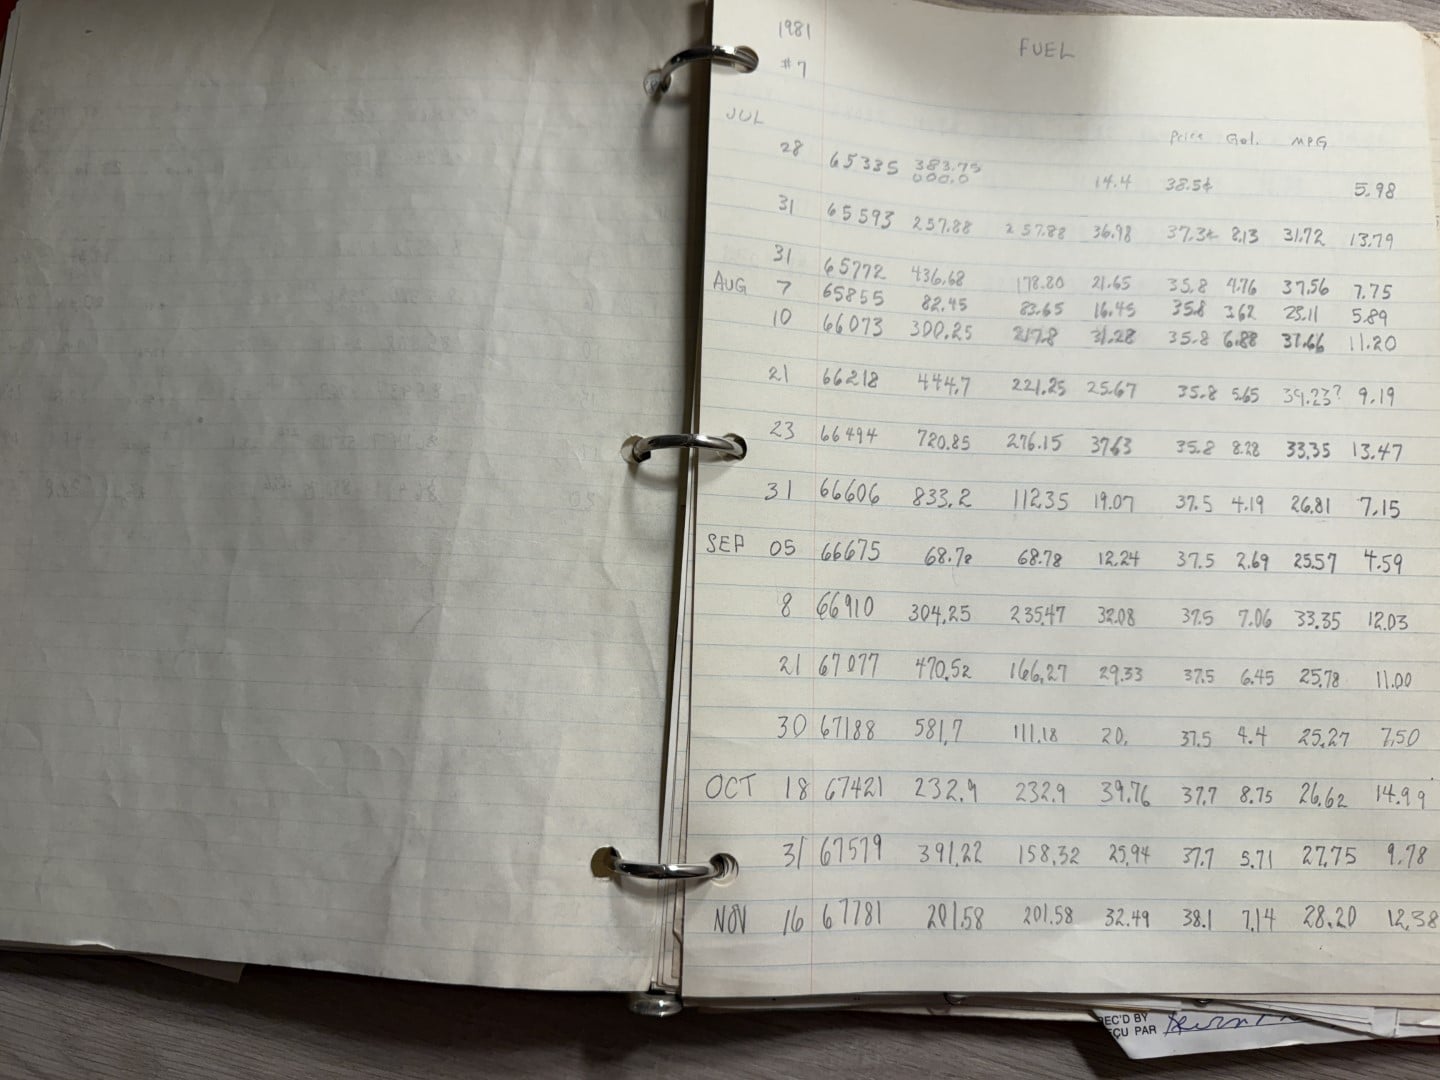 1981 FUEL
#7
JUL
Price Gal. MPG
28 65335 383.75
000.0 14.4 38.5¢ 5.98
31 65593 257.88 257.88 36.98 37.3¢ 8.13 31.72 13.79
31 65772 436.68 178.80 21.65 35.8 4.76 37.56 7.75
AUG 7 65855 82.45 83.65 16.45 35.8 3.62 23.11 5.89
10 66073 300.25 217.8 31.28 35.8 6.88 31.66 11.20
21 66218 444.7 221.25 25.67 35.8 5.65 39.23? 9.19
23 66494 720.85 276.15 37.63 35.8 8.28 33.35 13.47
31 66606 833.2 112.35 19.07 37.5 4.19 26.81 7.15
SEP 05 66675 68.78 68.78 12.24 37.5 2.69 25.57 4.59
8 66910 304.25 235.47 32.08 37.5 7.06 33.35 12.03
21 67077 470.52 166.27 29.33 37.5 6.45 25.78 11.00
30 67188 581.7 111.18 20. 37.5 4.4 25.27 7.50
OCT 18 67421 232.9 232.9 39.76 37.7 8.75 26.62 14.99
31 67579 391.22 158.32 25.94 37.7 5.71 27.75 9.78
NOV 16 67781 201.58 201.58 32.49 38.1 7.14 28.20 12.38
EC'D BY
EÇU PAR